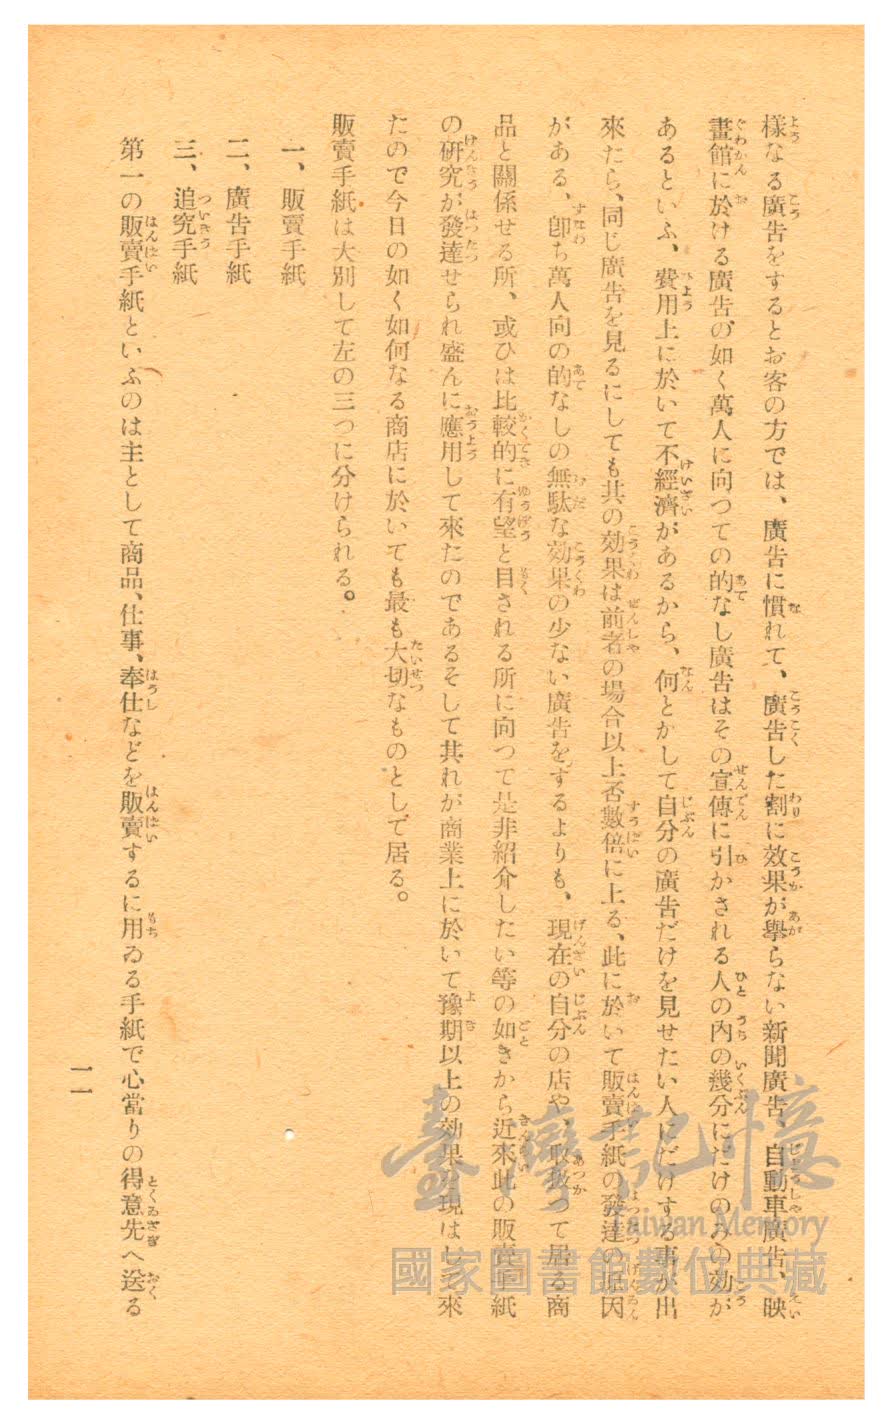 様なる廣告をするとお客の方では、廣告に慣れて、廣告した割に效果が擧らない新聞廣告、自動車廣告、映
畫館に於ける廣告の如く萬人に向つての的なし廣告はその宣傳に引かされる人の內の幾分にだけのみの効が
あるといふ、費用上に於いて不經濟があるから、何とかして自分の廣告だけを見せたい人にだけする事が出
來たら、同じ廣告を見るにしても其の効果は前者の場合以上否數倍に上る、此に於いて販賣手紙の發達の原因
がある、卽ち萬人向の的なしの無駄な効果の少ない廣告をするよりも、現在の自分の店や、取扱つて居る商
品と關係せる所、或ひは比較的に有望と目される所に向つて是非紹介したい等の如きから近來此の販賣手紙
の硏究が發達せられ盛んに應用して來たのであるそして其れが商業上に於いて豫期以上の効果を現はして來
たので今日の如く如何なる商店に於いても最も大切なものとして居る。
販賣手紙は大別して左の三つに分けられる。
一、販賣手紙
二、廣告手紙
三、追究手紙
第一の販賣手紙といふのは主として商品、仕事、奉仕などを販賣するに用ゐる手紙で心當りの得意先へ送る
一一
臺灣記憶
Taiwan Memory
國家圖書館數位典藏